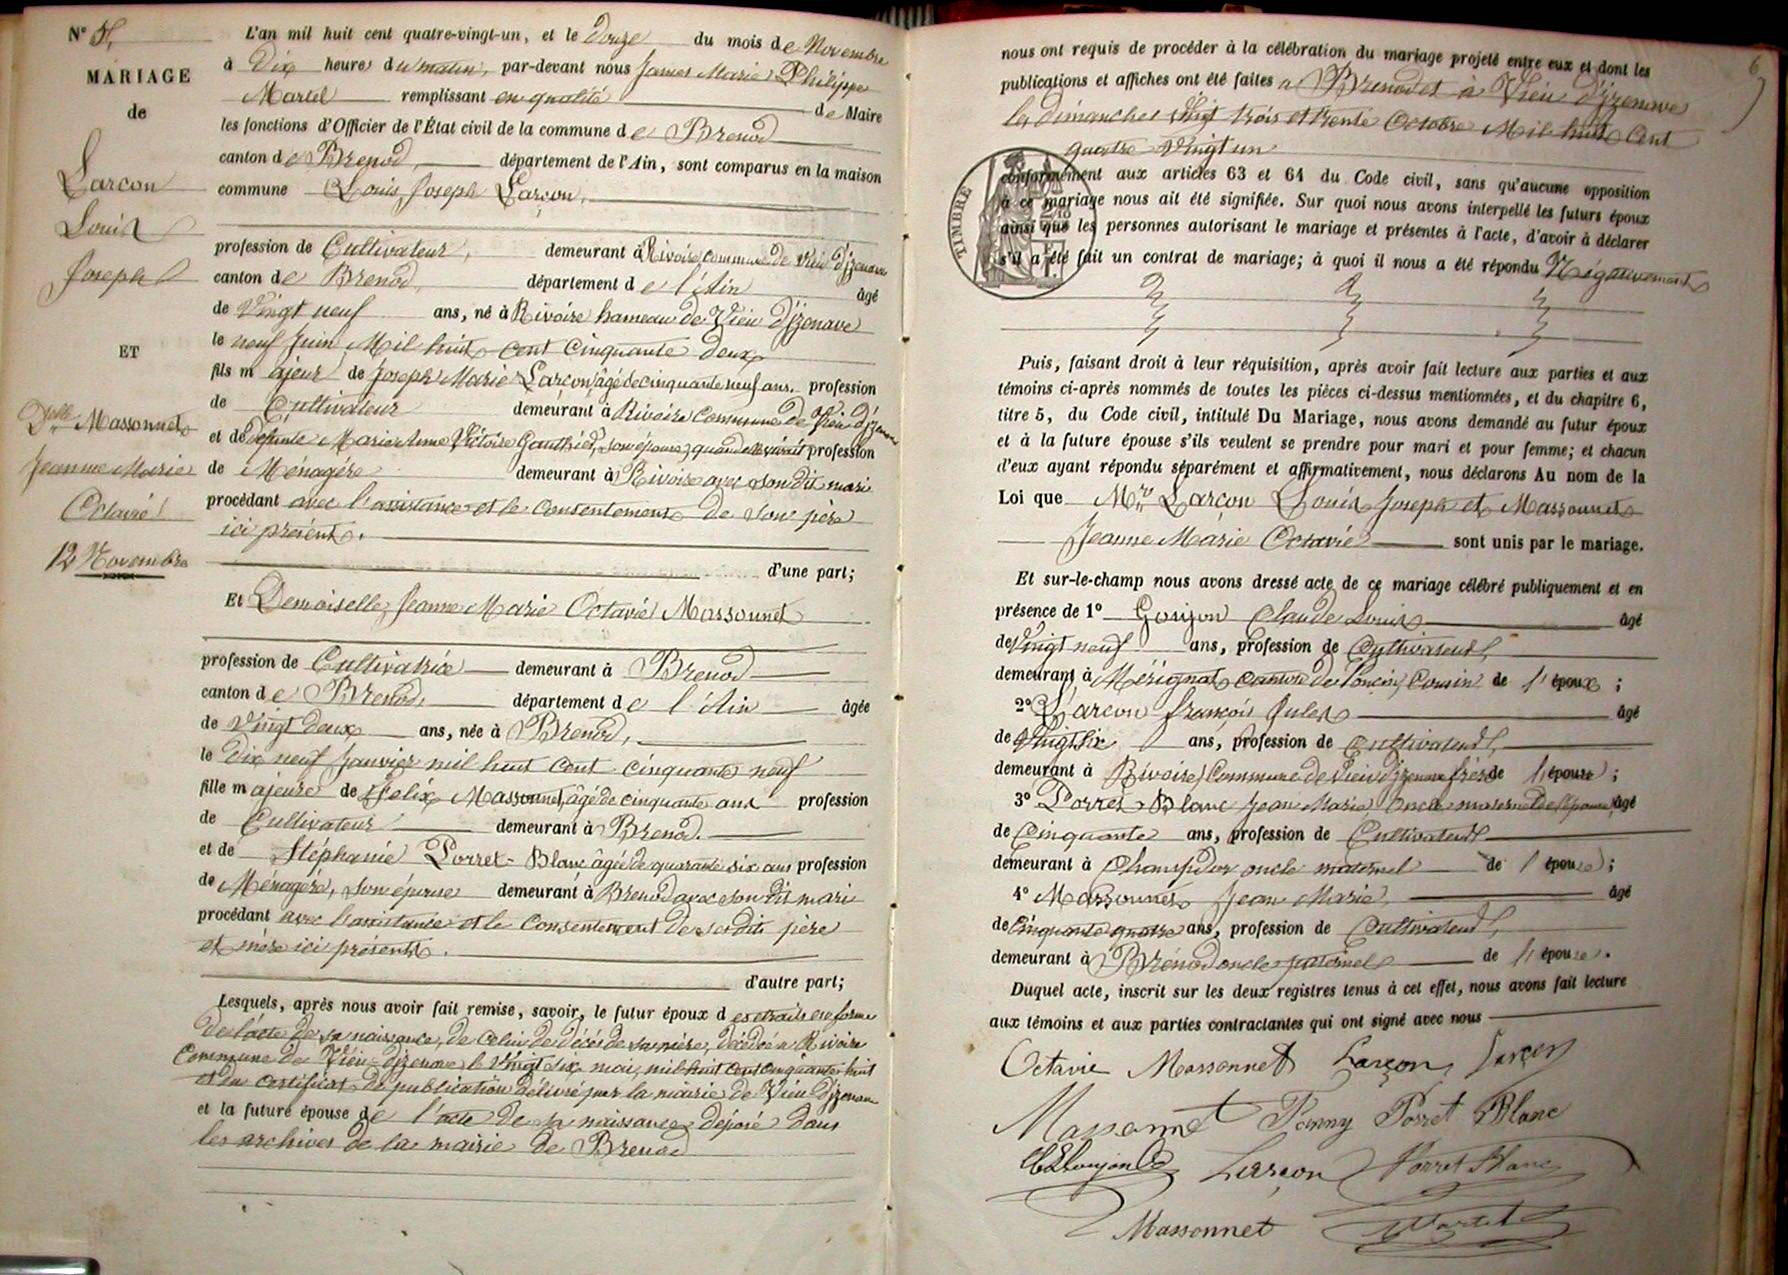 N° 5,
MARIAGE
de
Larçon
Louis
Joseph
ET
Delle Massonnet
Jeanne Marie
Octavie
12 Novembre
L'an mil huit cent quatre-vingt-un, et le douze du mois de Novembre
à Dix heures du matin, par-devant nous James Marie Philippe
Martel remplissant en qualité de Maire
les fonctions d'Officier de l'État civil de la commune de Brenod
canton de Brenod, département de l'Ain, sont comparus en la maison
commune Louis Joseph Larçon,
profession de Cultivateur, demeurant à Rivoire commune de Vieu d'izenave
canton de Brenod, département de l'Ain âgé
de Vingt neuf ans, né à Rivoire hameau de Vieu d'izenave
le neuf Juin Mil huit cent cinquante deux
fils majeur de Joseph Marie Larçon âgé de cinquante neuf ans. profession
de Cultivateur demeurant à Rivoire Commune de Vieu d'izenave
et de défunte Marie Anne Victoire Gauthier, son épouse, quand elle vivait profession
de Ménagère demeurant à Rivoire avec son dit mari
procédant avec l'assistance et le consentement de son père
ici présent.
d'une part;
Et Demoiselle, Jeanne Marie Octavie Massonnet
profession de Cultivatrice demeurant à Brenod
canton de Brenod, département de l'Ain âgée
de Vingt deux ans, née à Brenod,
le Dix neuf Janvier mil huit cent cinquante neuf
fille majeure de Félix Massonnet, âgé de cinquante ans profession
de Cultivateur demeurant à Brenod.
et de Stéphanie Porret-Blanc âgée de quarante six ans profession
de Ménagère, son épouse demeurant à Brenod avec son dit mari
procédant avec l'assistance et le consentement de ses dits père
et mère ici présents.
d'autre part;
Lesquels, après nous avoir fait remise, savoir, le futur époux d'extraits en forme
de l'acte de sa naissance, de celui de décès de sa mère, décédée à Rivoire
Commune de Vieu-d'izenave le vingt six mai, mil huit cent cinquante huit
et du certificat de publication délivré par la mairie de Vieu d'izenave
et la future épouse de l'acte de sa naissance déposé dans
les archives de la mairie de Brenod
6
nous ont requis de procéder à la célébration du mariage projeté entre eux et dont les
publications et affiches ont été faites à Brenod et à Vieu d'izenave
les dimanches Vingt trois et trente Octobre Mil huit Cent
quatre Vingt un
TIMBRE
conformément aux articles 63 et 64 du Code civil, sans qu'aucune opposition
à ce mariage nous ait été signifiée. Sur quoi nous avons interpellé les futurs époux
ainsi que les personnes autorisant le mariage et présentes à l'acte, d'avoir à déclarer
s'il a été fait un contrat de mariage; à quoi il nous a été répondu Négativement
Puis, faisant droit à leur réquisition, après avoir fait lecture aux parties et aux
témoins ci-après nommés de toutes les pièces ci-dessus mentionnées, et du chapitre 6,
titre 5, du Code civil, intitulé Du Mariage, nous avons demandé au futur époux
et à la future épouse s'ils veulent se prendre pour mari et pour femme; et chacun
d'eux ayant répondu séparément et affirmativement, nous déclarons Au nom de la
Loi que Larçon Louis Joseph et Massonnet
Jeanne Marie Octavie sont unis par le mariage.
Et sur-le-champ nous avons dressé acte de ce mariage célébré publiquement et en
présence de 1° Goujon Claude Louis âgé
de Vingt neuf ans, profession de Cultivateur,
demeurant à Mérignat canton de Poncin, Cousin de l'époux;
2° Larçon françois Jules âgé
de Vingt six ans, profession de Cultivateur,
demeurant à Rivoire, Commune de Vieu d'izenave frère de l'époux;
3° Porret-Blanc Jean Marie, Oncle maternel de l'épouse âgé
de Cinquante ans, profession de Cultivateur
demeurant à Champdor oncle maternel de l'épouse;
4° Massonnet Jean Marie, âgé
de Cinquante quatre ans, profession de Cultivateur,
demeurant à Brénod oncle paternel de l'épouse.
Duquel acte, inscrit sur les deux registres tenus à cet effet, nous avons fait lecture
aux témoins et aux parties contractantes qui ont signé avec nous
Octavie Massonnet Larçon Larçon
Massonnet Fanny Porret Blanc
Goujon Larçon Porret Blanc
Massonnet Martel